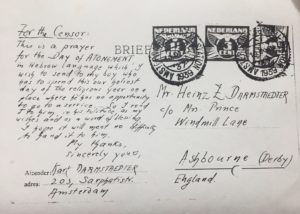 For the Censor.
This is a prayer
for the Day of ATONEMENT
in Hebrew Language which I
wish to send to my boy who
has to spend this holiest
day of the religious year on a
place where is no opportunity
to go to a service. So I send
to him, in his solitude, as my
wishes and as a word of blessing
I hope it will meet no difficulty
to hand it to him.
My thanks,
Sincerely yours,
Afzender: Karl DARMSTAEDTER
adres: 203, Sarphatistr.
Amsterdam
BRIEF
AMST
1939
1939
Mr. Heinz E. DARMSTAEDTER
c/o Mrs. Prince
Windmill Lane
Ashbourne (Derby)
England.